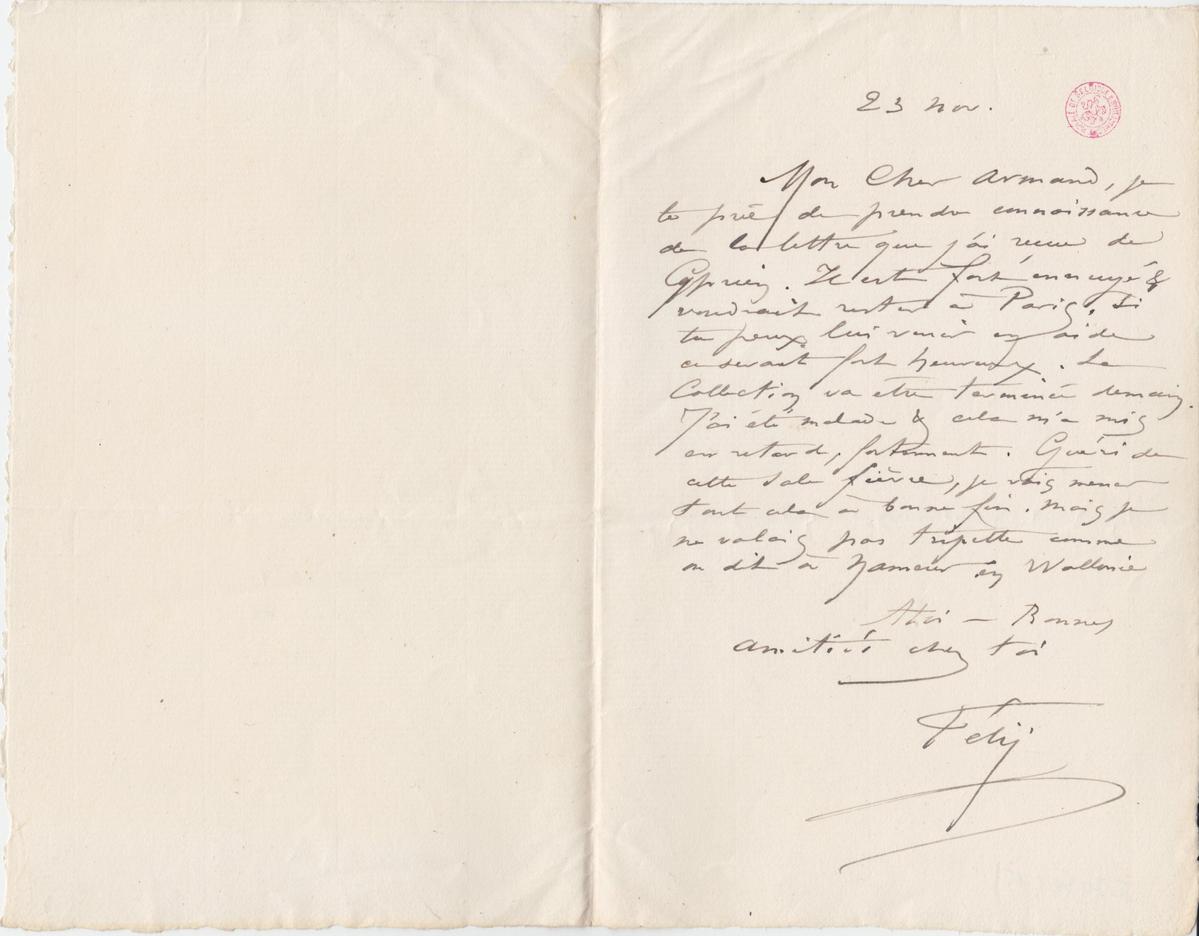 23 Nov.
Mon Cher Armand, je
te prie de prendre connaissance
de la lettre que j'ai reçue de
Cyprien. Il est fort ennuyé &
voudrait rester à Paris. Si
tu peux lui venir en aide
ce serait fort heureux. La
Collection va être terminée demain.
J'ai été malade & cela m'a mis
en retard, fortement. Guéri de
cette sale fièvre, je vais mener
tout cela à bonne fin. Mais je
ne valais pas tripette comme
on dit à Namur en Wallonie
A toi — Bonnes
amitiés chez toi
Fély